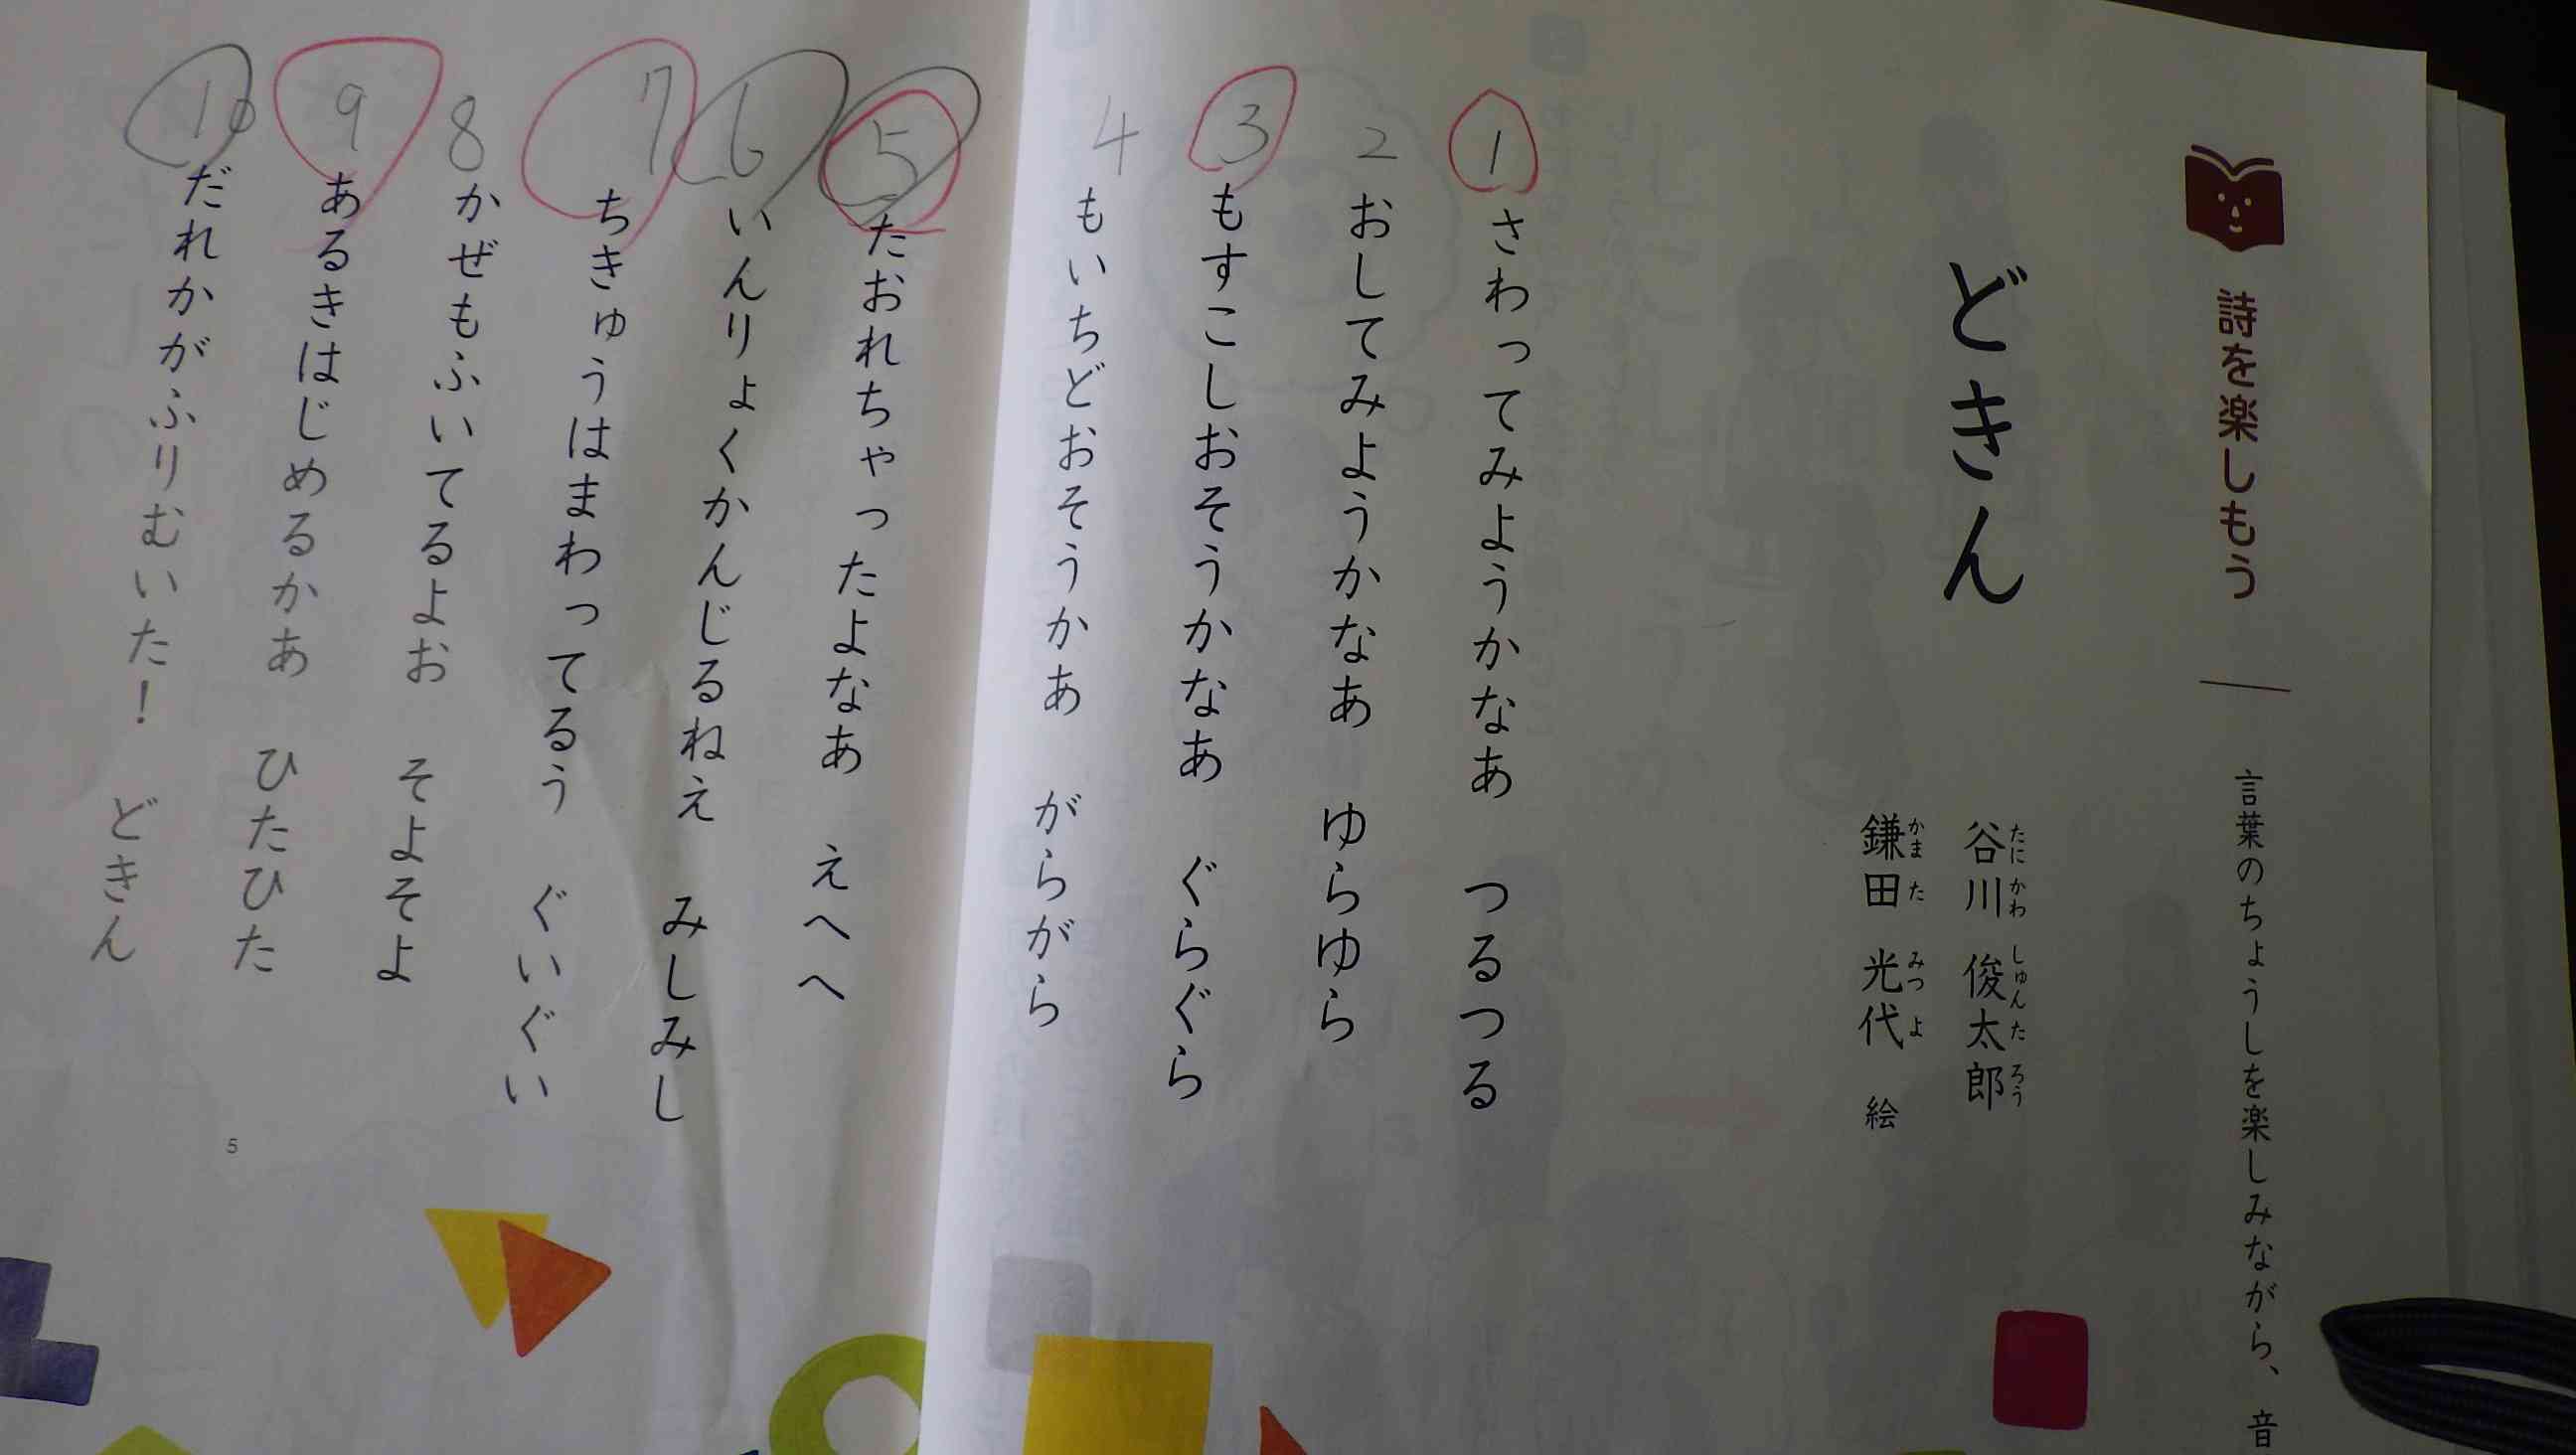 詩を楽しもう
言葉のちょうしを楽しみながら、音
どきん
谷川 俊太郎
たにかわ しゅんたろう
鎌田 光代 絵
かまた みつよ
1 さわってみようかなあ つるつる
2 おしてみようかなあ ゆらゆら
3 もすこしおそうかなあ ぐらぐら
4 もいちどおそうかあ がらがら
5 たおれちゃったよなあ えへへ
6 いんりょくかんじるねえ みしみし
7 ちきゅうはまわってるう ぐいぐい
8 かぜもふいてるよお そよそよ
9 あるきはじめるかあ ひたひた
10 だれかがふりむいた! どきん
5